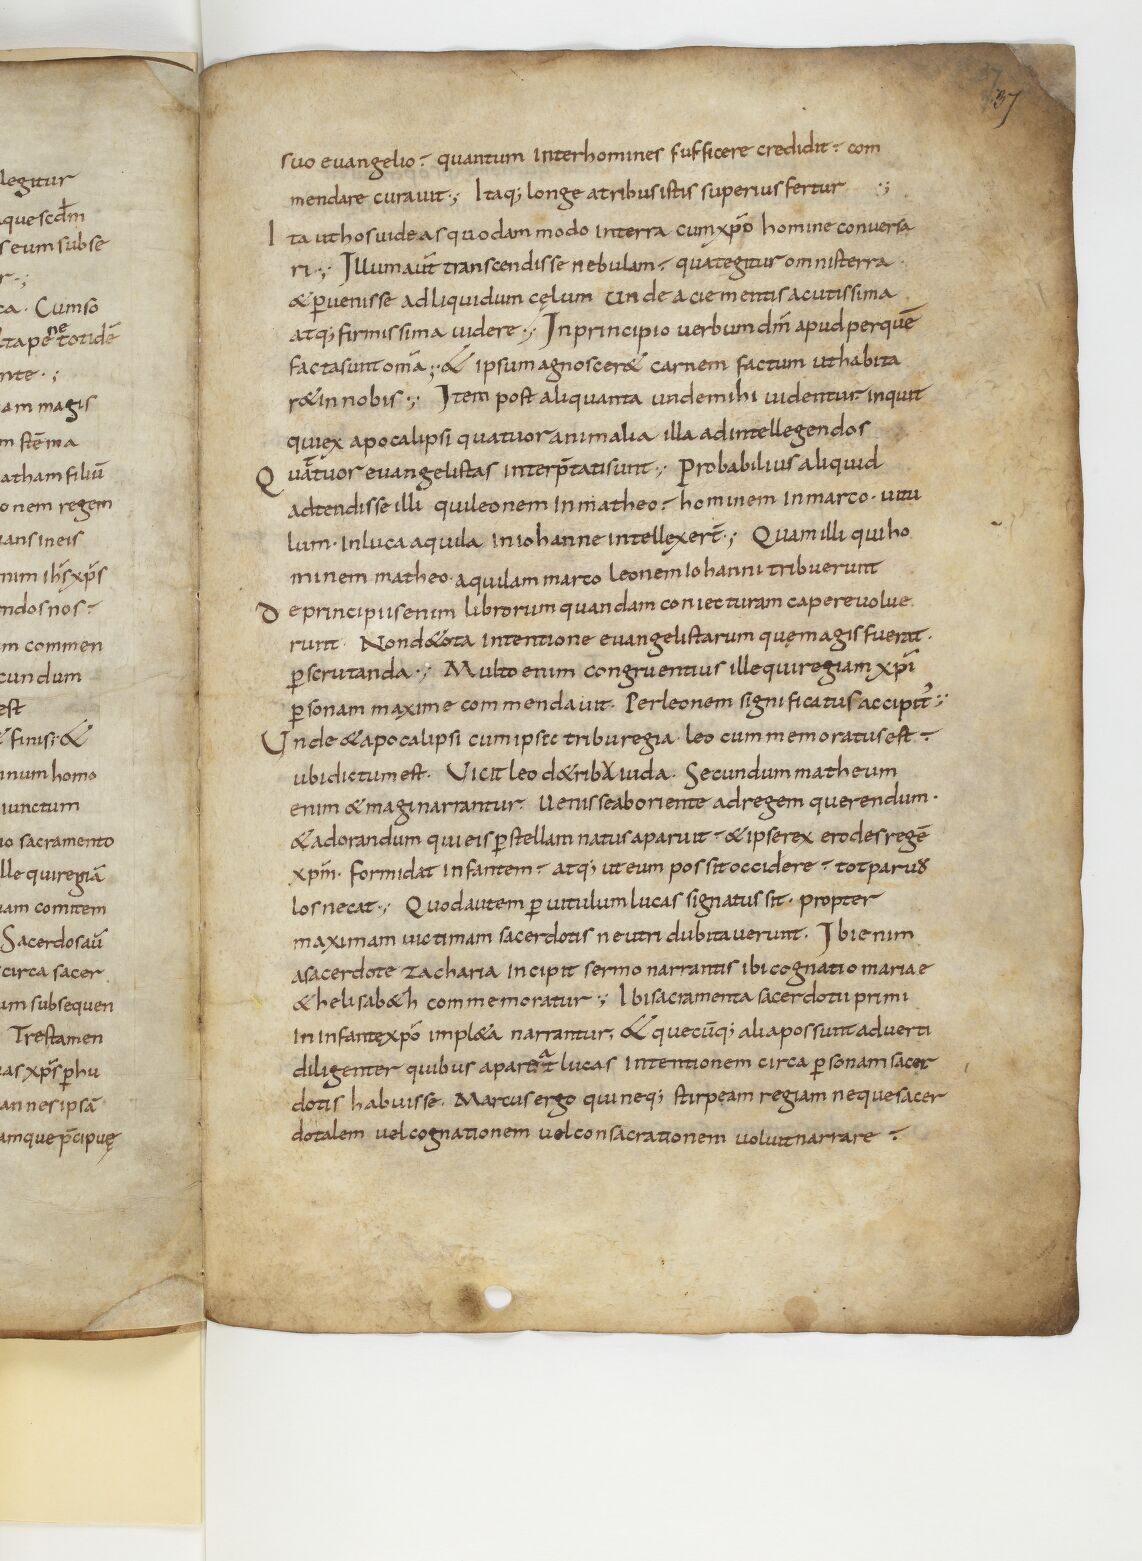 legitur
aquescd̄m
seumsubse
r·;
ca· Cumso
ctapenetotidē
nte·;
am magis
m stēma
athamfiliū
onem regem
uansineis
nim ih̄sxp̄s
ndosnos:
um commen
cundum
est
& finis;·&
inumhomo
iunctum
io sacramento
lle quiregiā
uam comitem
Sacerdosaū
circa sacer
um subsequen
Trestamen
cas xp̄s ꝑhu
annesipsā
amquep̄cipuę
37
suo euangelio: quantum interhomines sufficere credidit: com
mendare curauit·; Itaq; longe atribusistis superius fertur ·;
Ita uthosuideasquodammodo interra cumxp̄o homine conuersa
ri·; Illumaut̄ transcendisse nebulam: quategitur omnisterra·
&ꝑuenisse adliquidum cęlum unde acie mentis acutissima
atq; firmissima uidere·; Inprincipio uerbum dm̄ apud perquē
factasuntom̄a;·& ipsum agnoscer& carnem factum uthabita
r&innobis·; Item post aliquanta unde mihi uidentur· inquit
quiex apocalipsi quatuor animalia illa adintellegendos
Quātuor euangelistas interp̄tatisunt·; Probabilius aliquid
adtendisse illi quileonem inmatheo: hominem inmarco· uitu
lum· inluca aquila iniohanne intellexert̄·; Quam illi quiho
minem matheo· aquilam marco leonem iohanni tribuerunt
De principiisenim librorum quandam coniecturam capere uolue
runt· Nond&ota intentione euangelistarum quęmagis fuerat·
ꝑscrutanda·; Multo enim congruentius ille quiregiam xp̄i
ꝑsonam maxime commendauit· Perleonem significatus accipit᷒·;
Unde &apocalipsi cumipsec triburegia· leo cummemoratus est:
ubidictumest· Uicit leo d&ribu iuda· Secundum matheum
enim &magi narrantur· Uenisseaboriente adregem querendum·
&adorandum qui eis ꝑstellam natus aparuit: &ipserex erodes regē
xp̄m· formidat infantem: atq; ut eum possit occidere: totparuo
los necat·; Quodautem ꝑ uitulum lucas signatus sit· propter
maximam uictimam sacerdotis neutri dubitauerunt· Ibi enim
asacerdote zacharia incipit sermo narrantis ibi cognatio mariae
&helisab&h commemoratur·; Ibi sacramenta sacerdotii primi
ininfantexp̄o impl&a narrantur; & quecūq; alia possunt aduerti
diligenter quibus apareat lucas intentionem circa ꝑsonam sacer
dotis habuisse· Marcus ergo qui neq; stirpeam regiam neque sacer
dotalem uel cognationem uel consacrationem uoluit narrare :